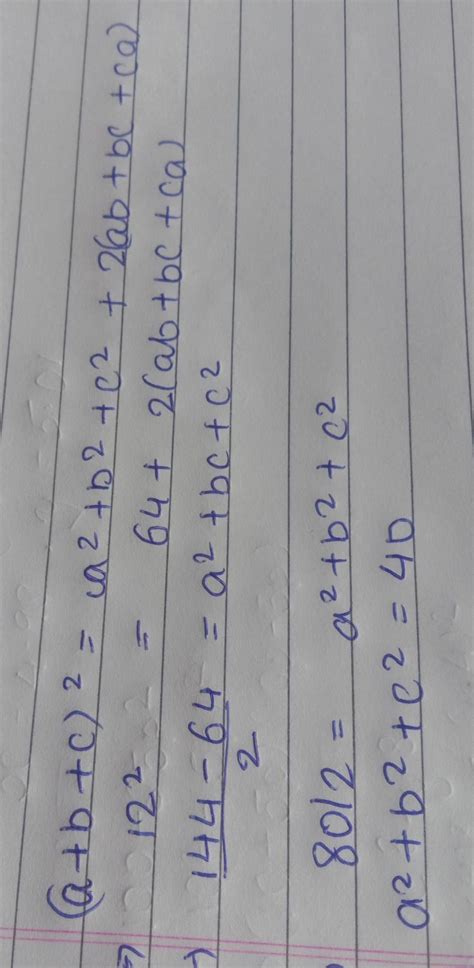 (a+b+c)² = a²+b²+c² + 2(ab+bc+ca)
⇒ 12² = 64 + 2(ab+bc+ca)
144-64/2 = a²+bc+c²
80/2 = a²+b²+c²
a²+b²+c² = 40